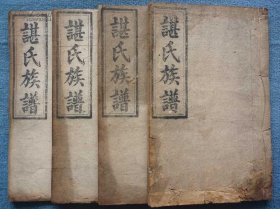 諶氏族譜
諶氏族譜
諶氏族譜
諶氏族譜